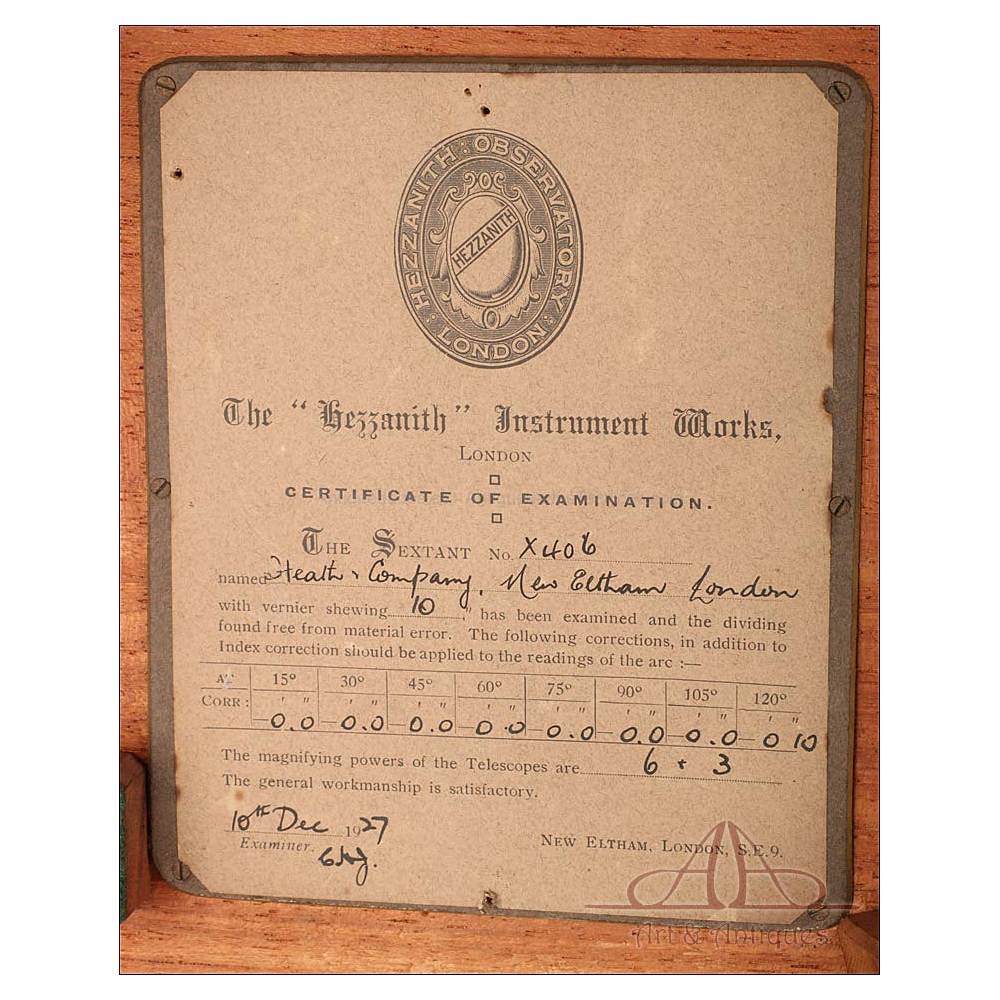 HEZZANITH : OBSERVATORY : LONDON :
HEZZANITH
The "Hezzanith" Instrument Works,
LONDON
CERTIFICATE OF EXAMINATION.
THE SEXTANT No. X406
named Heath & Company, New Eltham London
with vernier shewing 10 " has been examined and the dividing
found free from material error. The following corrections, in addition to
Index correction should be applied to the readings of the arc :—
AT 15° 30° 45° 60° 75° 90° 105° 120°
CORR : ' " ' " ' " ' " ' " ' " ' " ' "
—0.0 —0.0 —0.0 —0.0 —0.0 —0.0 —0.0 —0 10
The magnifying powers of the Telescopes are 6 + 3
The general workmanship is satisfactory.
10th Dec 1927
Examiner.
NEW ELTHAM, LONDON, S.E.9.
Art & Antiques